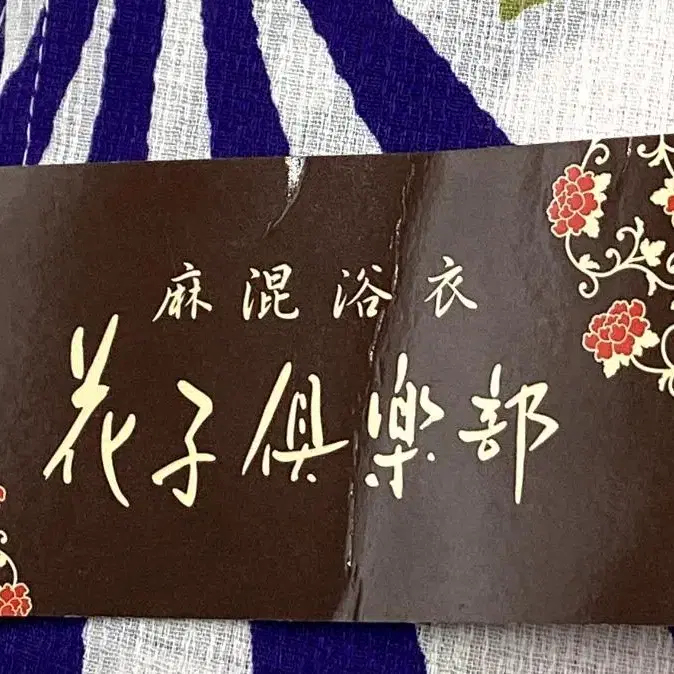 麻混浴衣
花子倶楽部